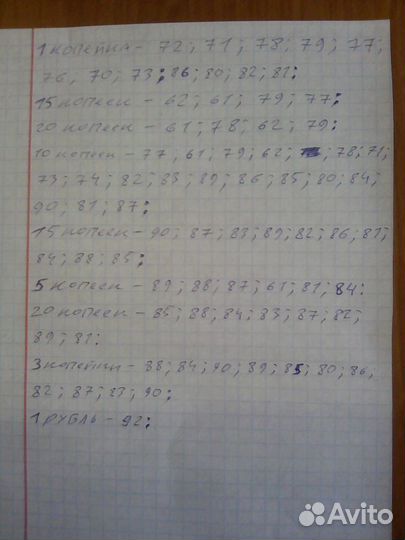 1 копейка - 72; 71; 78; 79; 77;
76, 70; 73; 86; 80; 82; 81;
15 копеек - 62; 61; 79; 77;
20 копеек - 61; 78; 62; 79;
10 копеек - 77; 61; 79; 62; 78; 71;
73; 74; 82; 83; 89; 86; 85; 80; 84;
90; 81; 87;
15 копеек - 90; 87; 83; 89; 82; 86; 81;
84; 88; 85;
5 копеек - 89; 88; 87; 61; 81; 84;
20 копеек - 85; 88; 84; 83; 87; 82;
89; 81;
3 копейки - 88; 84; 90; 89; 85; 80; 86,
82; 87; 83; 90;
1 рубль - 92;
Avito